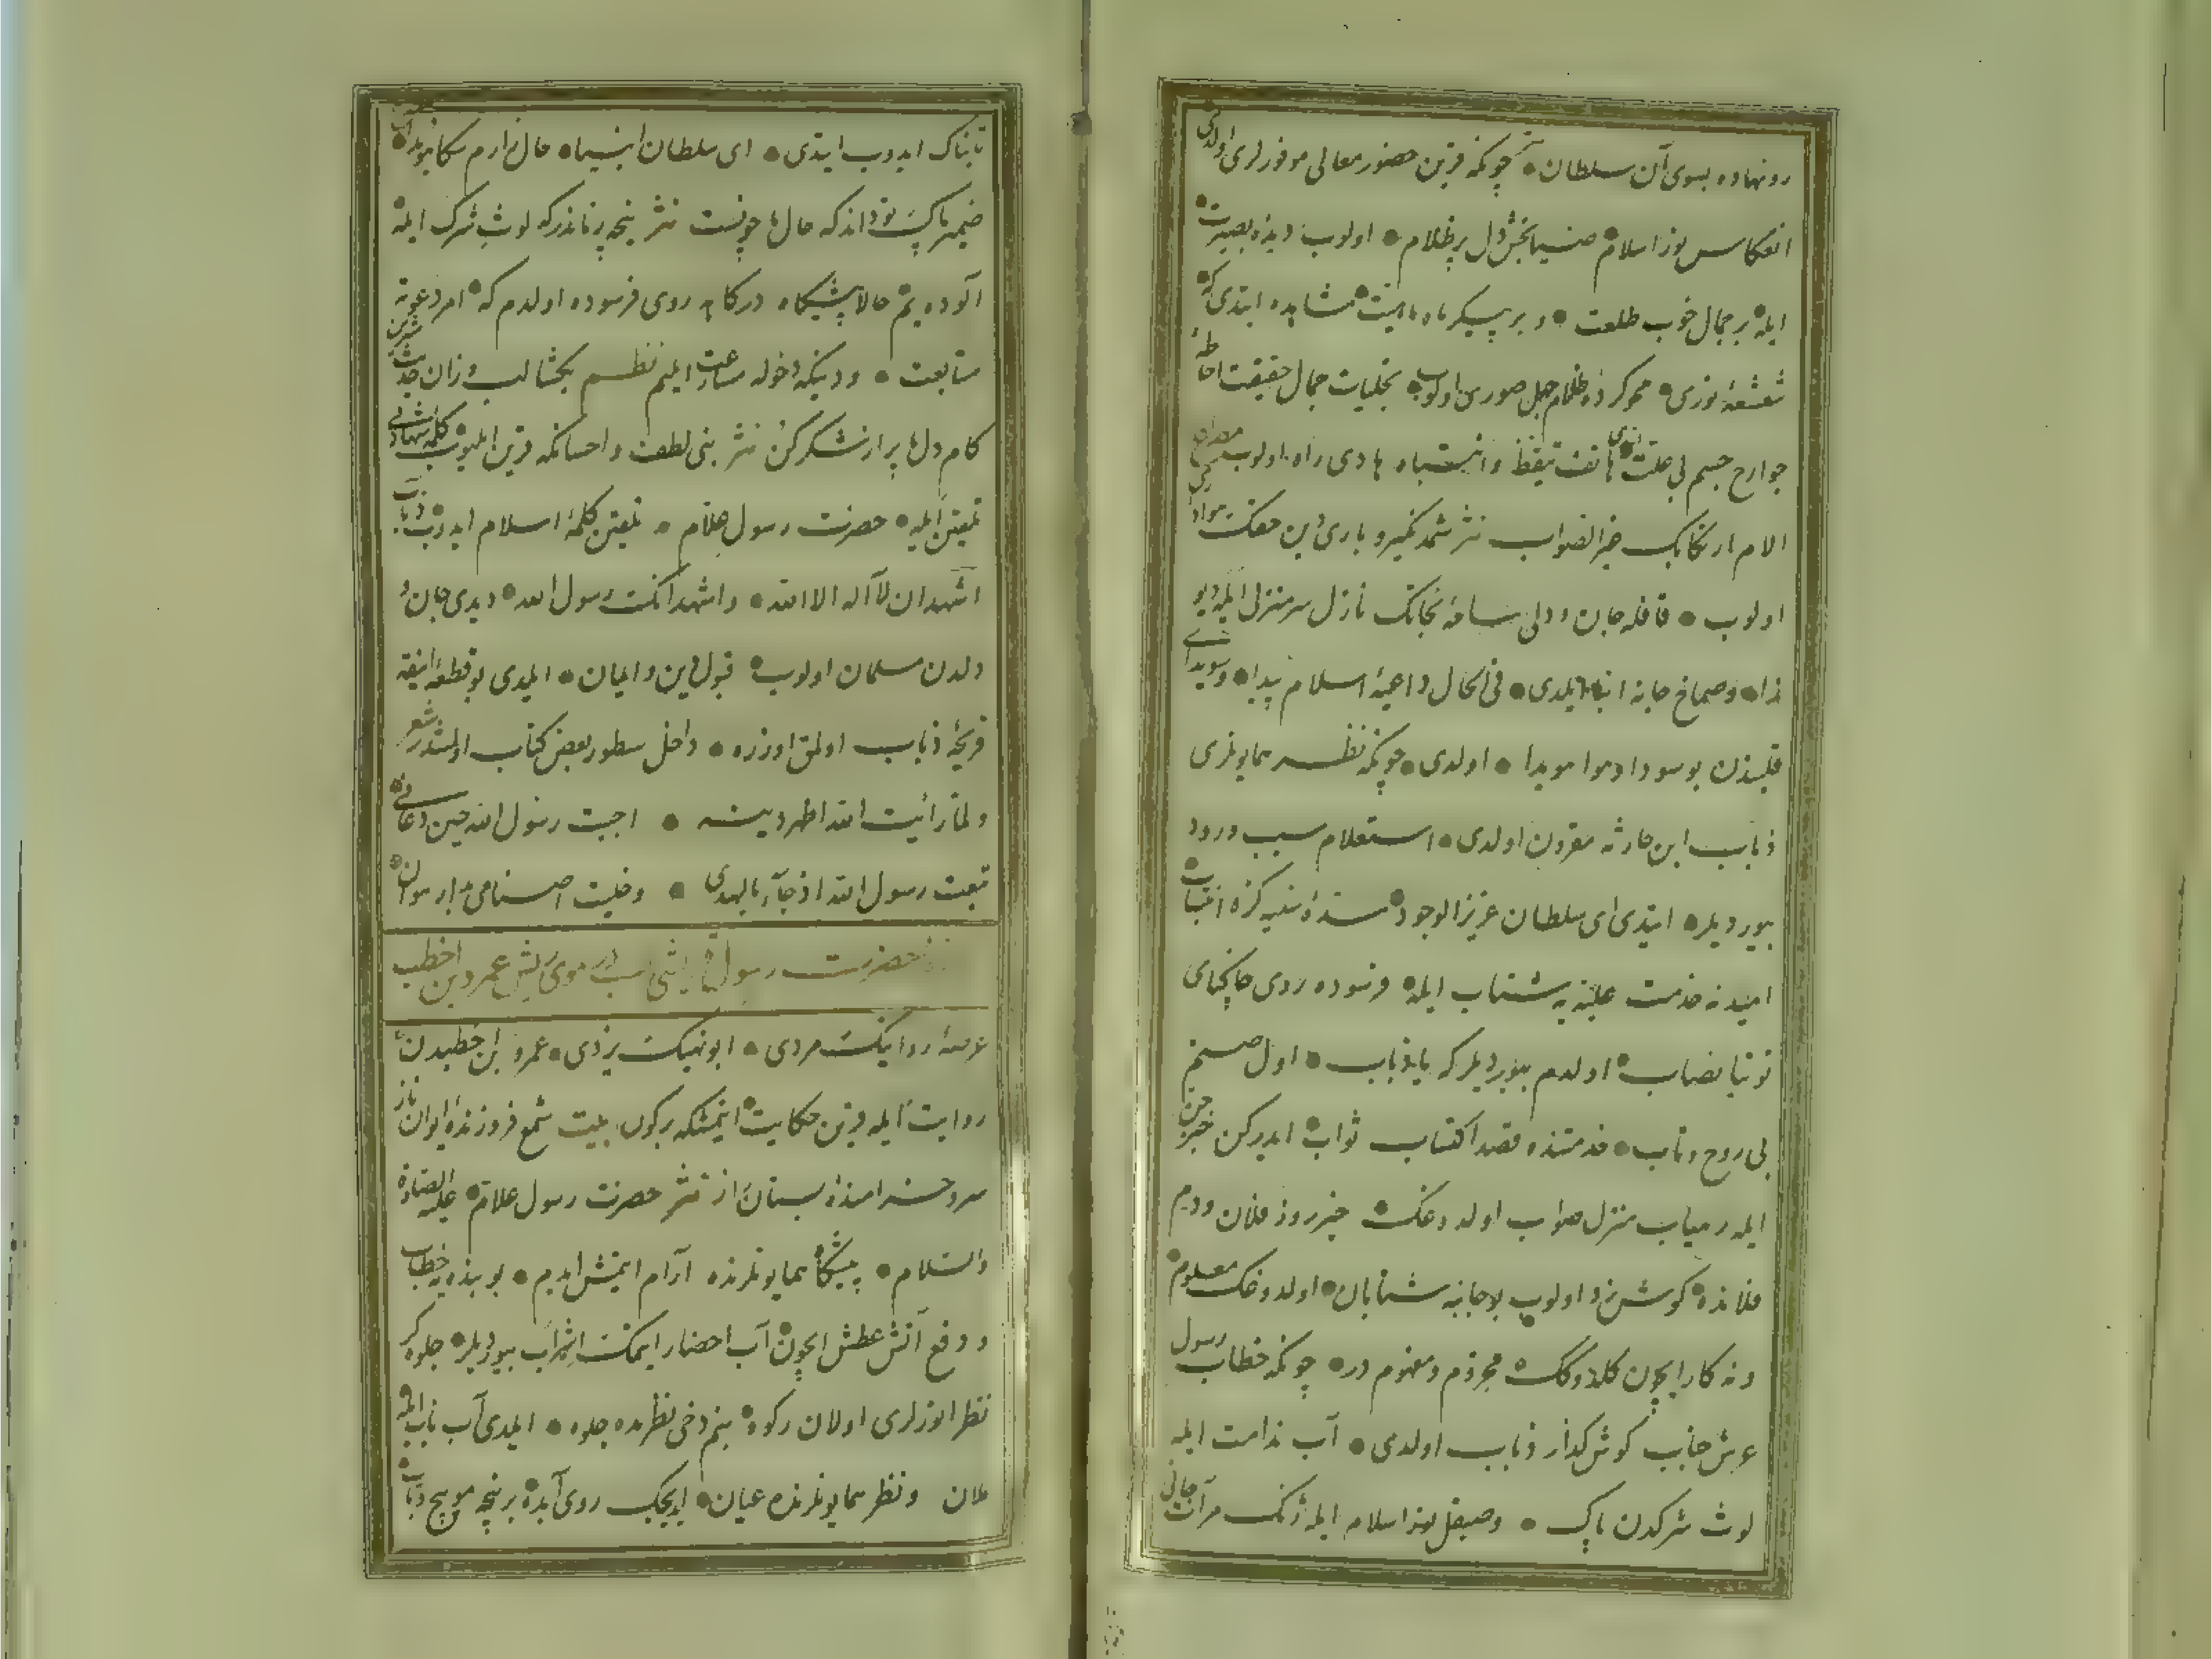 رو نهاده بسوی آن سلطان نثر چونکه قرین حضور معالی موفورلری اولدی
انعکاس نور اسلام ضیابخش دل پرظلام اولوب دیدهٔ بصیرت
ایله بر جمال خوب طلعت و بر پیکر ماه ماهیت مشاهده ایتدی که
شعشعهٔ نوری محو کردهٔ ظلام جهل صوری اولوب تجلیات جمال حقیقت احاطهٔ
جوارح جسم بی علت ایتدی هاتف تیقظ و انتباه هادی راه اولوب
الام ارتکابک خیر الصواب نثر
اولوب قافله جان و دلی ساحهٔ نجاتک نازل سرمنزلی ایله دیو
ندا و صماخ جانه انها ایلدی فی الحال داعیهٔ اسلام پیدا و سویدای
قلبندن بو سودا هویدا اولدی چونکه نظر همایونلری
ذباب ابن حارثه مقرون اولدی استعلام سبب ورود
بیوردیلر ایتدی ای سلطان عزیز الوجود سدهٔ سنیه کزه انتساب
امیدنه خدمت علیه یه شتاب ایله فرسوده روی خاکپای
توتیا نصاب اولدم بیوردیلر که یا ذباب اول صنم
بی روح و تاب خدمتنده قصد اکتساب ثواب ایدرکن خبر جن
ایله رهیاب منزل صواب اولدوغک خبر روز فلان و دم
فلانده گوش زد اولوب بو جانبه شتابان اولدوغک معلوم
و نه کار ایچون کلدوکک مجزوم و مفهوم در چونکه خطاب رسول
عرش جناب گوش گذار ذباب اولدی آب ندامت ایله
لوث شرکدن پاک و صیقل نور اسلام ایله ژنک مرآت جانی
تابناک ایدوب ایتدی ای سلطان انبیا حال زارم سکا هویدا
ضمیر پاکت تو داند که حال ما چونست نثر نیجه پرناندر که لوث شرک ایله
آلوده یم حالا پیشگاه درگاهه روی فرسوده اولدم که امر دعوته
متابعت و دینکه دخوله مسارعت ایلیم نظم بکشا لب و زان حدیث شیرین
کام دل ما پر از شکر کن نثر بنی لطف و احسانکه قرین ایلیوب کلمهٔ شهادتی
تلقین ایله حضرت رسول علام تلقین کلمهٔ اسلام ایدوب ذباب
اشهد ان لا اله الا الله و اشهد انک رسول الله دیدی جان و
دلدن مسلمان اولوب قبول دین و ایمان ایلدی بو قطعهٔ انیقه
قریحهٔ ذباب اولمق اوزره داخل سطور بعض کتاب اولمشدر شعر
و لما رأیت الله اظهر دینه اجبت رسول الله حین دعانی
تبعت رسول الله اذ جآء بالهدی و خلیت اصنامی
حضرت رسول موی ریش عمرو بن اخطب
عرصهٔ روایتک مردی ابو نهیک یزدی عمرو ابن اخطبدن
روایت ایله قرین حکایت ایتمشکه بر کون بیت شمع فروزندهٔ ایوان ناز
سرو خرامندهٔ بستان ناز نثر حضرت رسول علام علیه الصلوة
والسلام پیشگاه همایونلرنده آرام ایتمش ایدم بو بنده یه خطاب
و دفع آتش عطش ایچون آب احضار ایتمک اشراب بیوردیلر جلوه گر
نظر انورلری اولان رکوه بنم دخی نظرمده جلوه ایلدی آب ناب ایله
ملان و نظر همایونلرنده عیان ایدیجک روی آبده بر نیجه موی